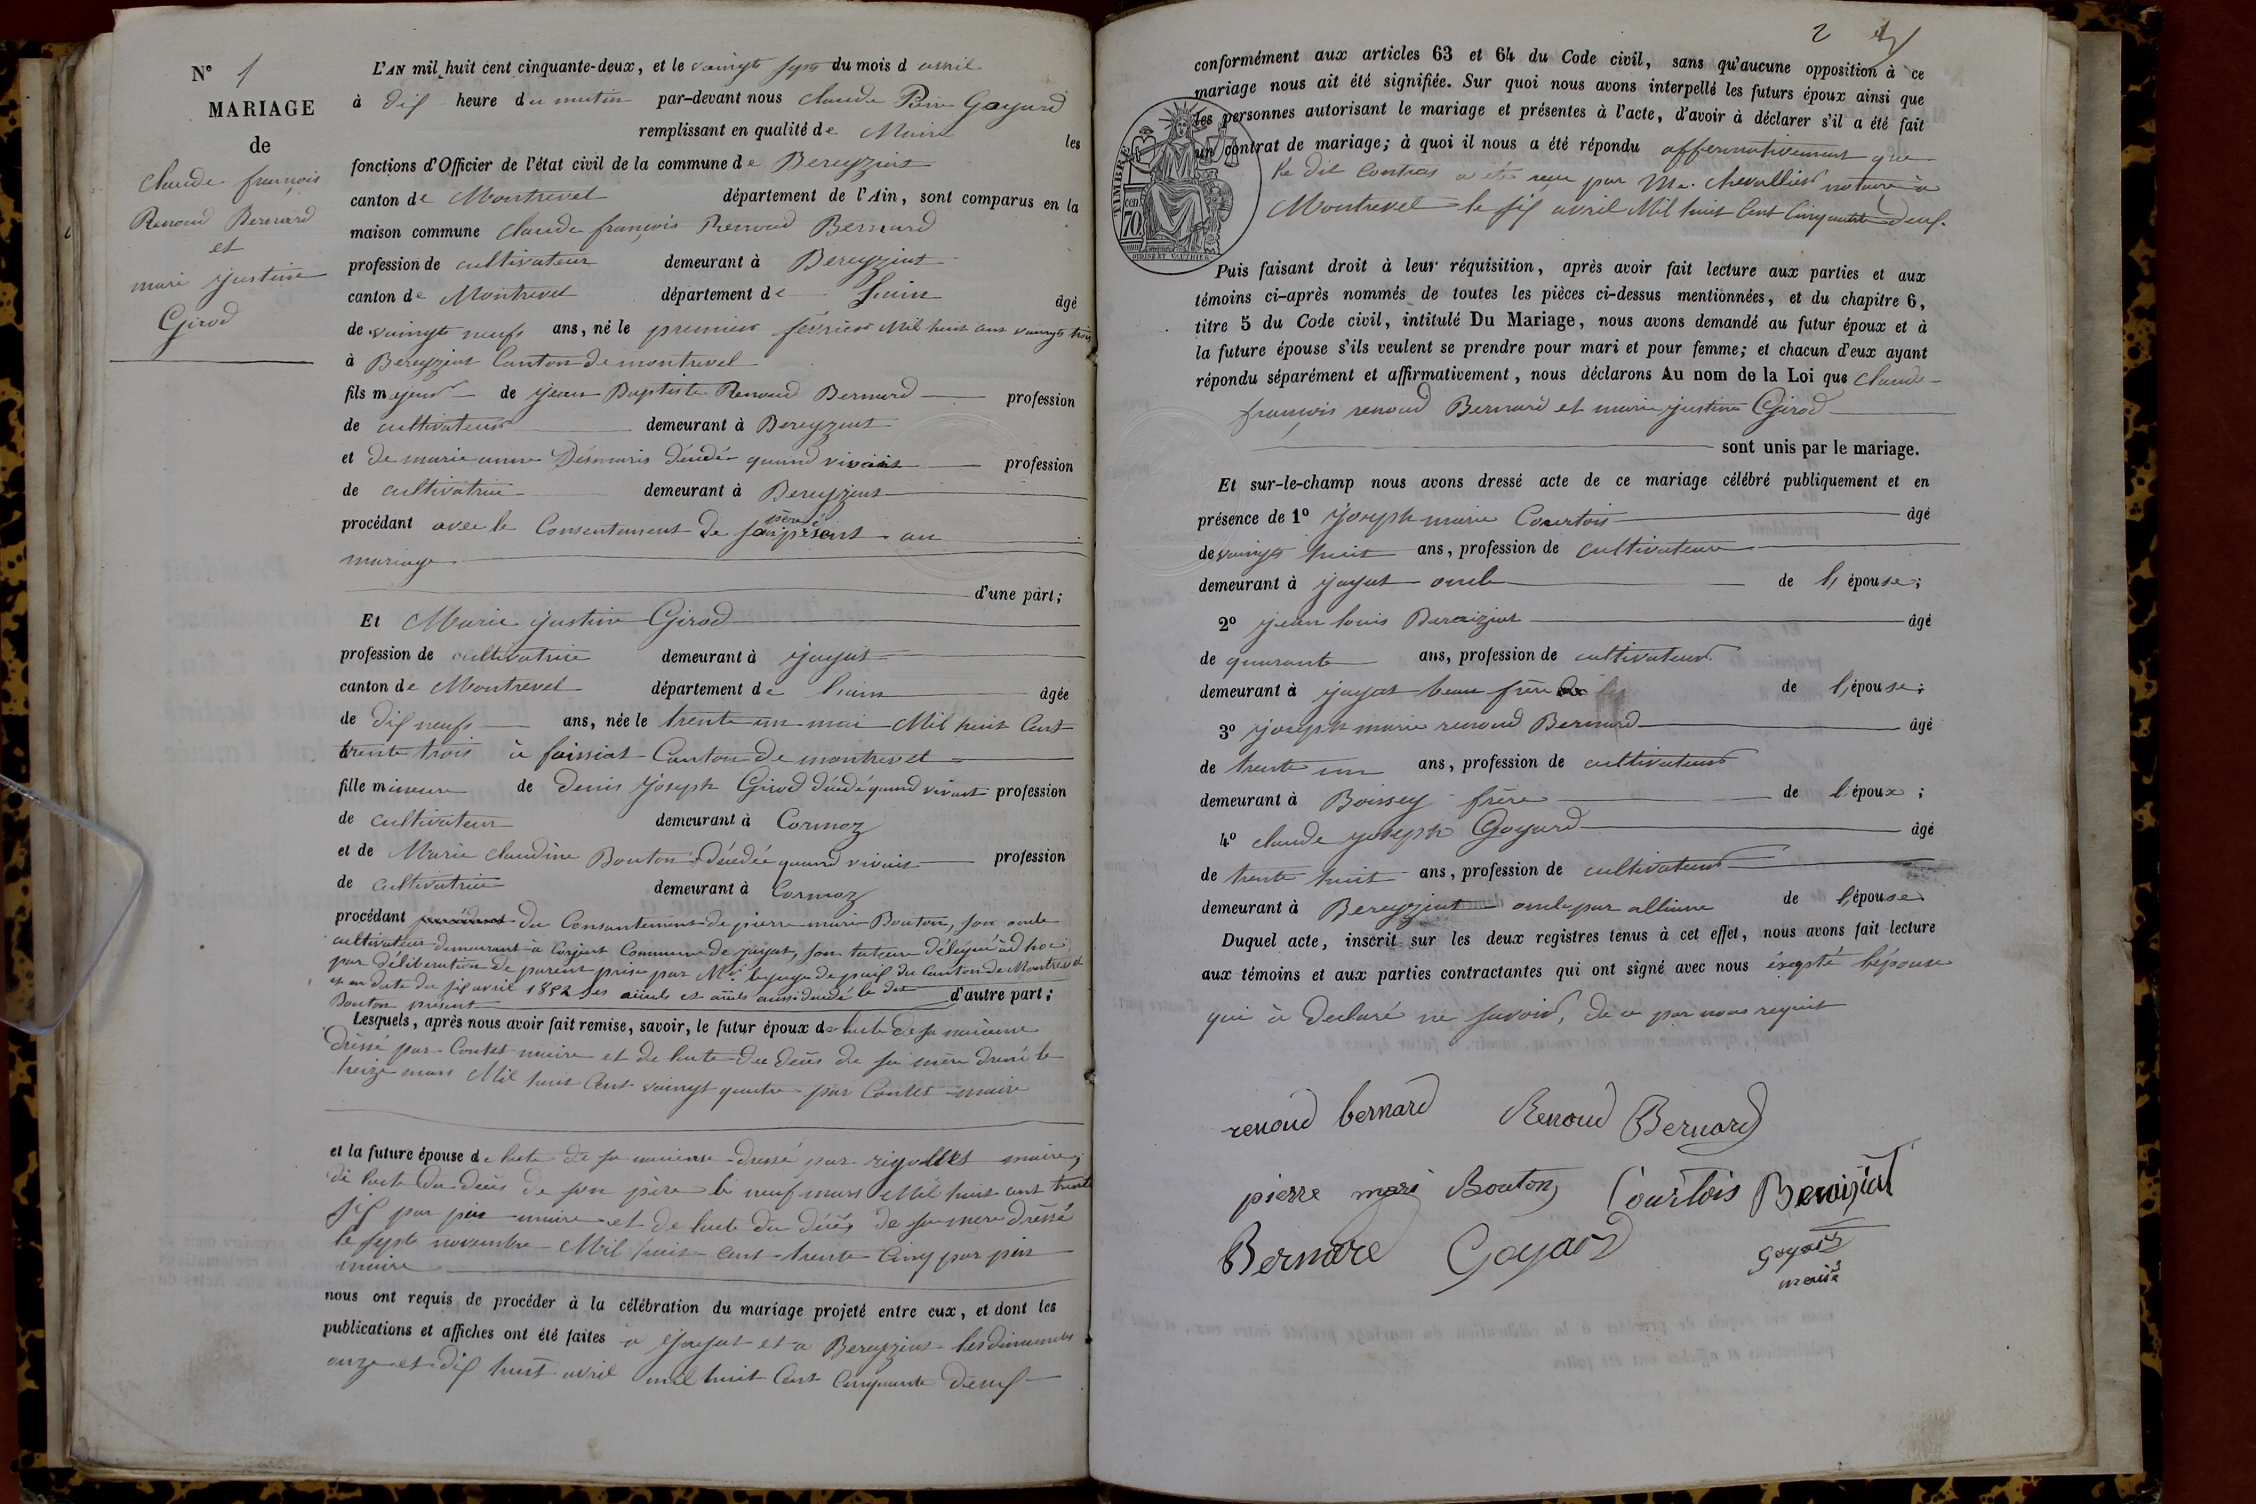 N° 1
MARIAGE
de
claude françois
Renoud Bernard
et
marie justine
Girod
L'AN mil huit cent cinquante-deux, et le vaingt sept du mois d avril
à dix heure du matin par-devant nous claude Goyard
remplissant en qualité de Maire les
fonctions d'Officier de l'état civil de la commune de Bereyziat
canton de Montrevel département de l'Ain, sont comparus en la
maison commune claude françois Renoud Bernard
profession de cultivateur demeurant à Bereyziat
canton de Montrevel département de Lain âgé
de vaingt neuf ans, né le premier février Mil huit cent vaingt trois
à Bereyziat Canton de montrevel
fils majeur de jean Baptiste Renoud Bernard profession
de cultivateur demeurant à Bereyziat
et de marie anne Désmaris décédée quand vivait profession
de cultivatrice demeurant à Bereyziat
procédant avec le Consentement de son père présent au
mariage
d'une part;
Et Marie justine Girod
profession de cultivatrice demeurant à jayat
canton de Montrevel département de Lain âgée
de dix neuf ans, née le trente un mai Mil huit Cent
trente trois à foissiat Canton de montrevel
fille mineure de Denis joseph Girod décédé quand vivait profession
de cultivateur demeurant à Cormoz
et de Marie claudine Bouton décédée quand vivait profession
de cultivatrice demeurant à Cormoz
procédant du Consantement de pierre marie Bouton, son oncle
cultivateur demeurant à Commune de jayat, son tuteur délégué ad hoc
par déliberation de parent prise par Mr le juge de paix du Canton de Montrevel
et en date du six avril 1852 ses aieuls et aieuls aussi décédé le dit
Bouton présent d'autre part;
Lesquels, après nous avoir fait remise, savoir, le futur époux de lacte de sa naisence
dréssé par Contet maire et de lacte du décès de sa mère dressé le
treize mars Mil huit Cent vaingt quatre par Contet maire
et la future épouse de lacte de sa naisense dressé par rigollet maire,
de lacte du décès de son père le neuf mars Mil huit cent trente
six par maire et de lacte du décès de sa mere dréssé
le sept novembre Mil huit cent trente Cinq par
maire
nous ont requis de procéder à la célébration du mariage projeté entre eux, et dont les
publications et affiches ont été faites a jayat et a Bereyziat les dimanches
onze et dix huit avril mil huit Cent Cinquante deux
2
conformément aux articles 63 et 64 du Code civil, sans qu'aucune opposition à ce
mariage nous ait été signifiée. Sur quoi nous avons interpellé les futurs époux ainsi que
les personnes autorisant le mariage et présentes à l'acte, d'avoir à déclarer s'il a été fait
un contrat de mariage; à quoi il nous a été répondu affermativement que
le dit Contras a été reçu par Me. chevallier notaire à
Montrevel le six avril Mil huit Cent Cinquante deux.
TIMBRE
70
Puis faisant droit à leur réquisition, après avoir fait lecture aux parties et aux
témoins ci-après nommés de toutes les pièces ci-dessus mentionnées, et du chapitre 6,
titre 5 du Code civil, intitulé Du Mariage, nous avons demandé au futur époux et à
la future épouse s'ils veulent se prendre pour mari et pour femme; et chacun d'eux ayant
répondu séparément et affirmativement, nous déclarons Au nom de la Loi que claude
françois renoud Bernard et marie justine Girod
sont unis par le mariage.
Et sur-le-champ nous avons dressé acte de ce mariage célébré publiquement et en
présence de 1° joseph marie Courtois âgé
de vaingt huit ans, profession de cultivateur
demeurant à jayat oncle de l'épouse;
2° jean louis Beraiziat âgé
de quarante ans, profession de cultivateur
demeurant à jayat beau frère de l'épouse;
3° joseph marie renoud Bernard âgé
de trente un ans, profession de cultivateur
demeurant à Boissey frère de l'époux;
4° claude joseph Goyard âgé
de trente huit ans, profession de cultivateur
demeurant à Bereyziat oncle par alliance de l'épouse
Duquel acte, inscrit sur les deux registres tenus à cet effet, nous avons fait lecture
aux témoins et aux parties contractantes qui ont signé avec nous éxcepté lépouse
qui à declaré ne savoir, de ce par nous requit
renoud bernard Renoud Bernard
pierre mari Bouton Courtois Beraiziat
Bernard Goyard Goyard
maire